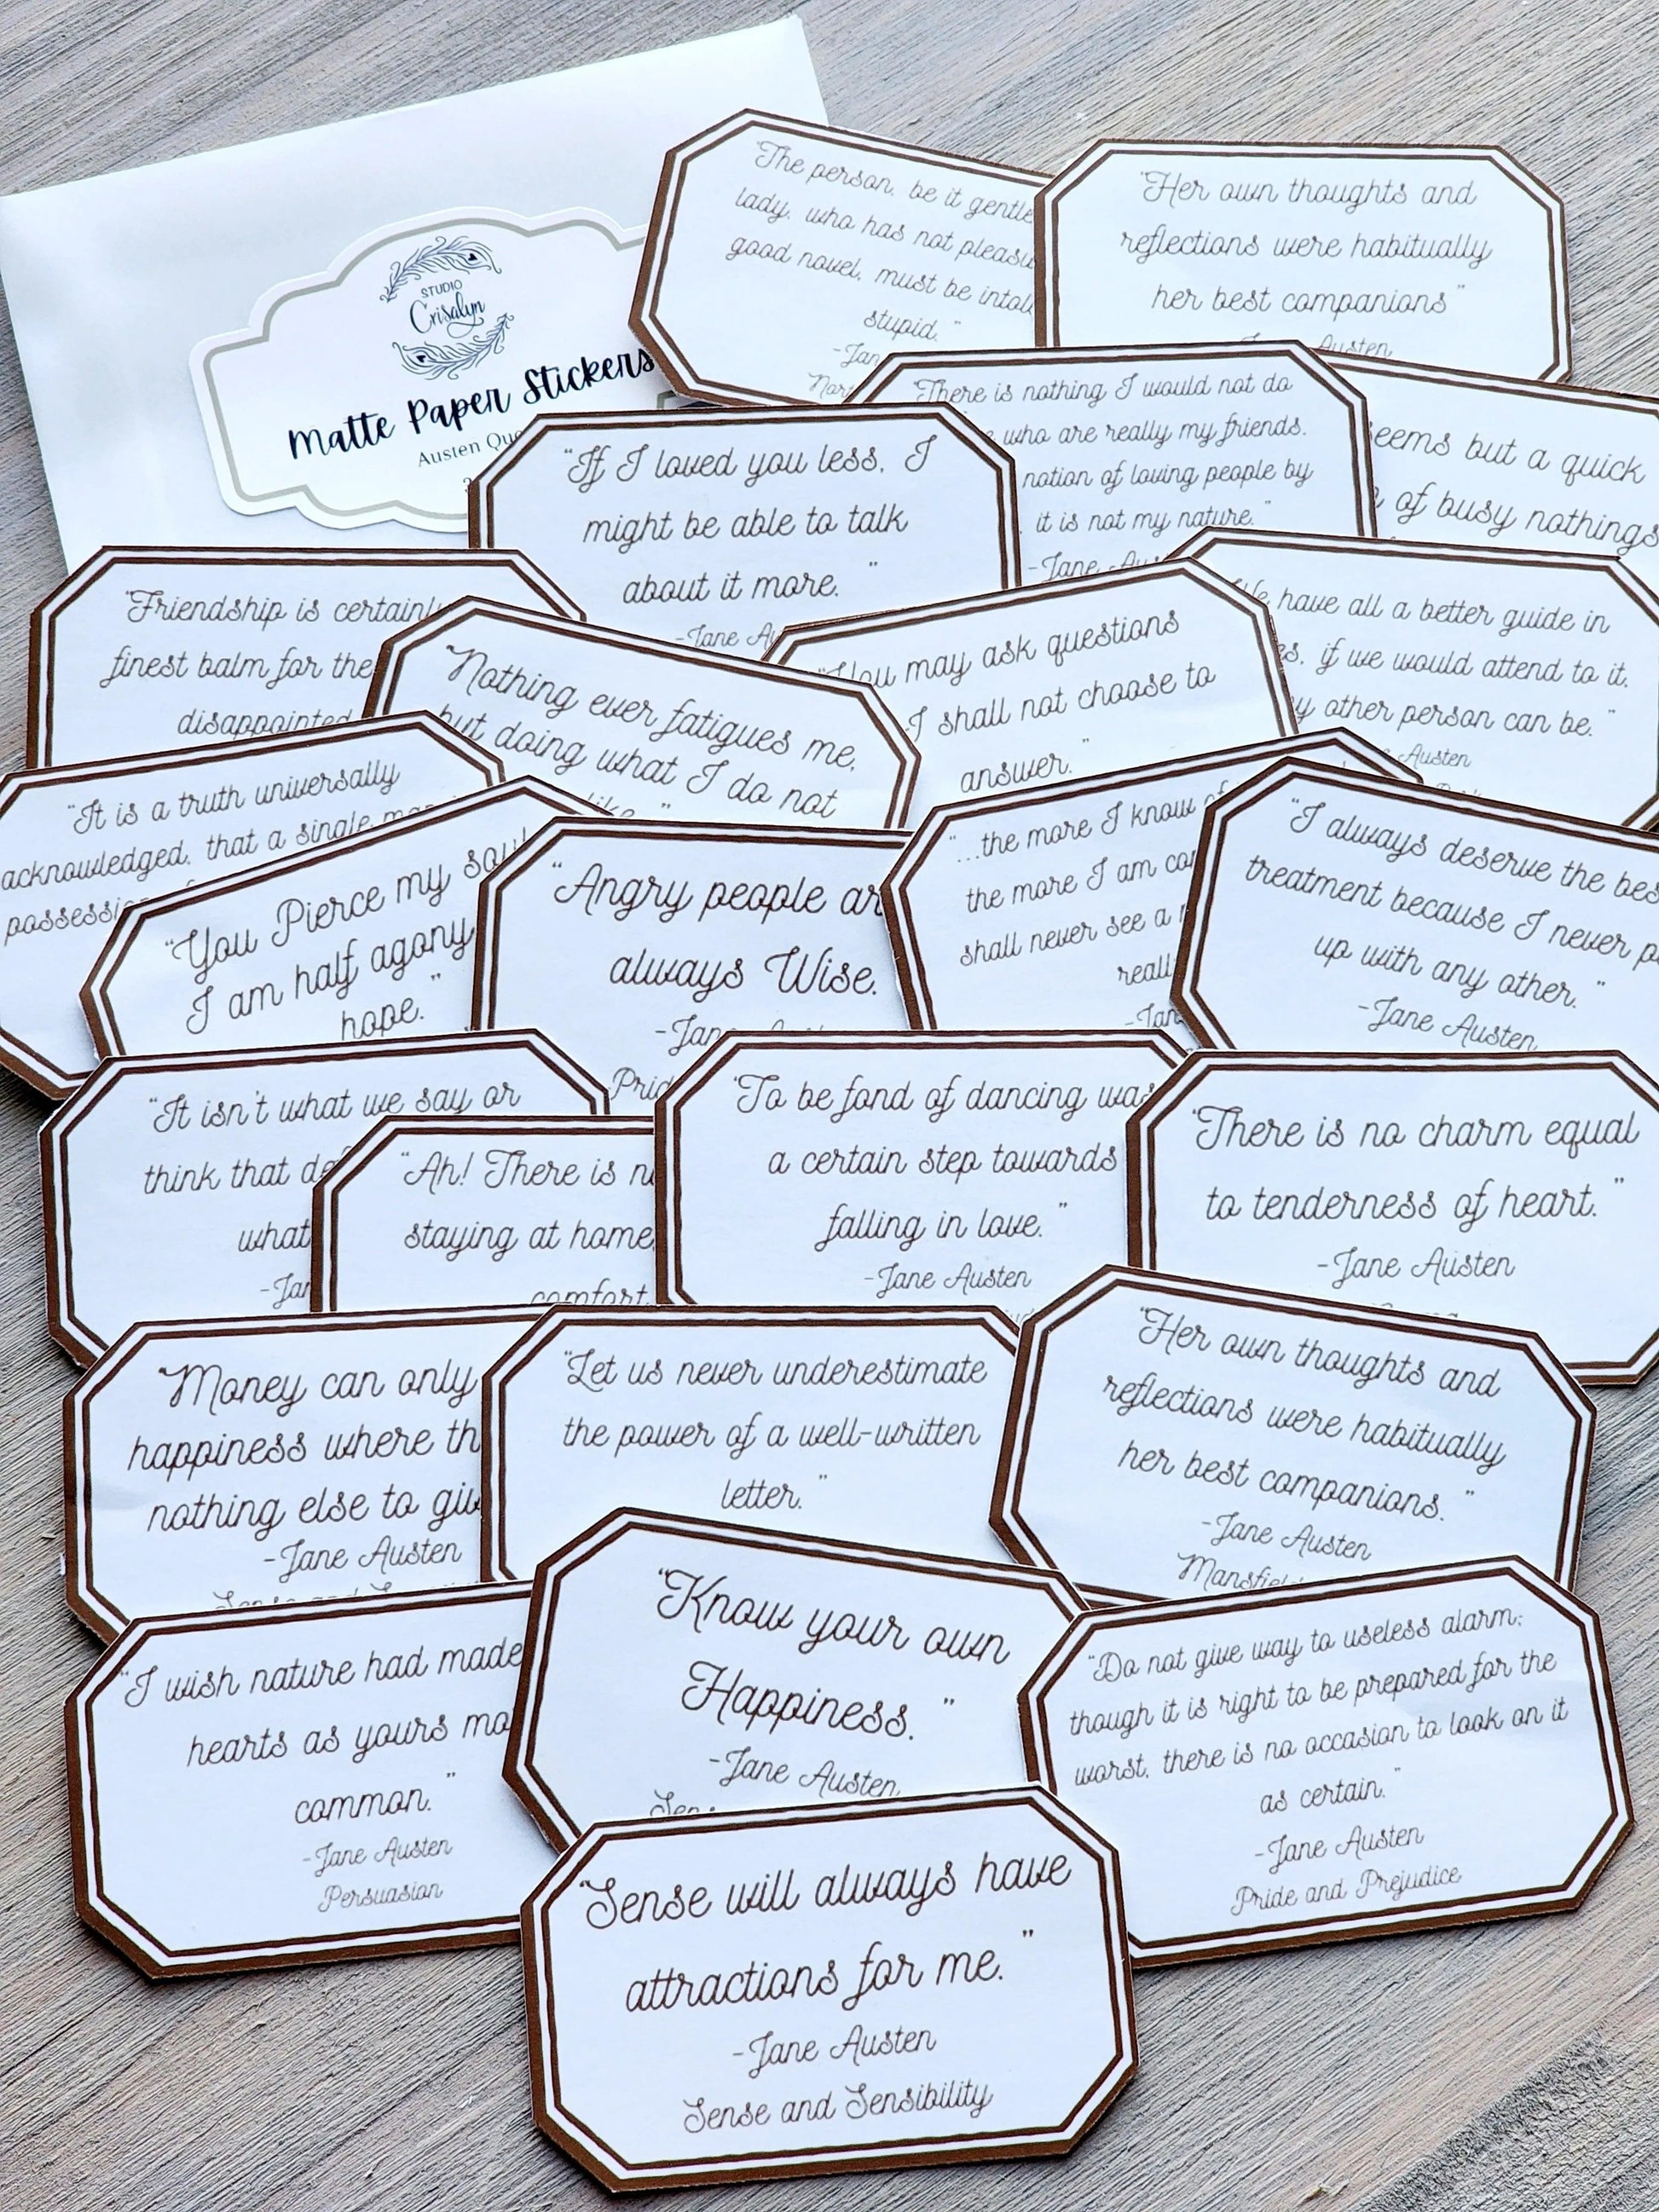 STUDIO
Crisalyn
Matte Paper Stickers
Austen
"The person, be it
lady, who has not
good novel, must be
stupid."
"Her own thoughts and
reflections were habitually
her best companions"
Austen
"There is nothing I would not do
who are really my friends.
notion of loving people by
it is not my nature."
-Jane
but a quick
of busy nothings
"If I loved you less, I
might be able to talk
about it more. "
-Jane
have all a better guide in
if we would attend to it,
other person can be. "
Austen
"Friendship is
finest balm for the
disappointed
"Nothing ever fatigues me,
but doing what I do not
like. "
"You may ask questions
I shall not choose to
answer. "
"It is a truth universally
acknowledged, that a single
"You Pierce my
I am half agony
hope. "
"Angry people
always Wise.
"...the more I know of
the more I am
shall never see a
"I always deserve the
treatment because I never
up with any other. "
-Jane Austen
"It isn't what we say or
think that
what
"Ah! There is
staying at home
comfort.
"To be fond of dancing was
a certain step towards
falling in love. "
-Jane Austen
"There is no charm equal
to tenderness of heart. "
-Jane Austen
"Money can only
happiness where
nothing else to
-Jane Austen
Sense and
"Let us never underestimate
the power of a well-written
letter. "
"Her own thoughts and
reflections were habitually
her best companions. "
-Jane Austen
"I wish nature had made
hearts as yours
common. "
-Jane Austen
Persuasion
"Know your own
Happiness. "
-Jane Austen,
"Do not give way to useless alarm;
though it is right to be prepared for the
worst, there is no occasion to look on it
as certain. "
-Jane Austen
Pride and Prejudice
"Sense will always have
attractions for me. "
-Jane Austen
Sense and Sensibility